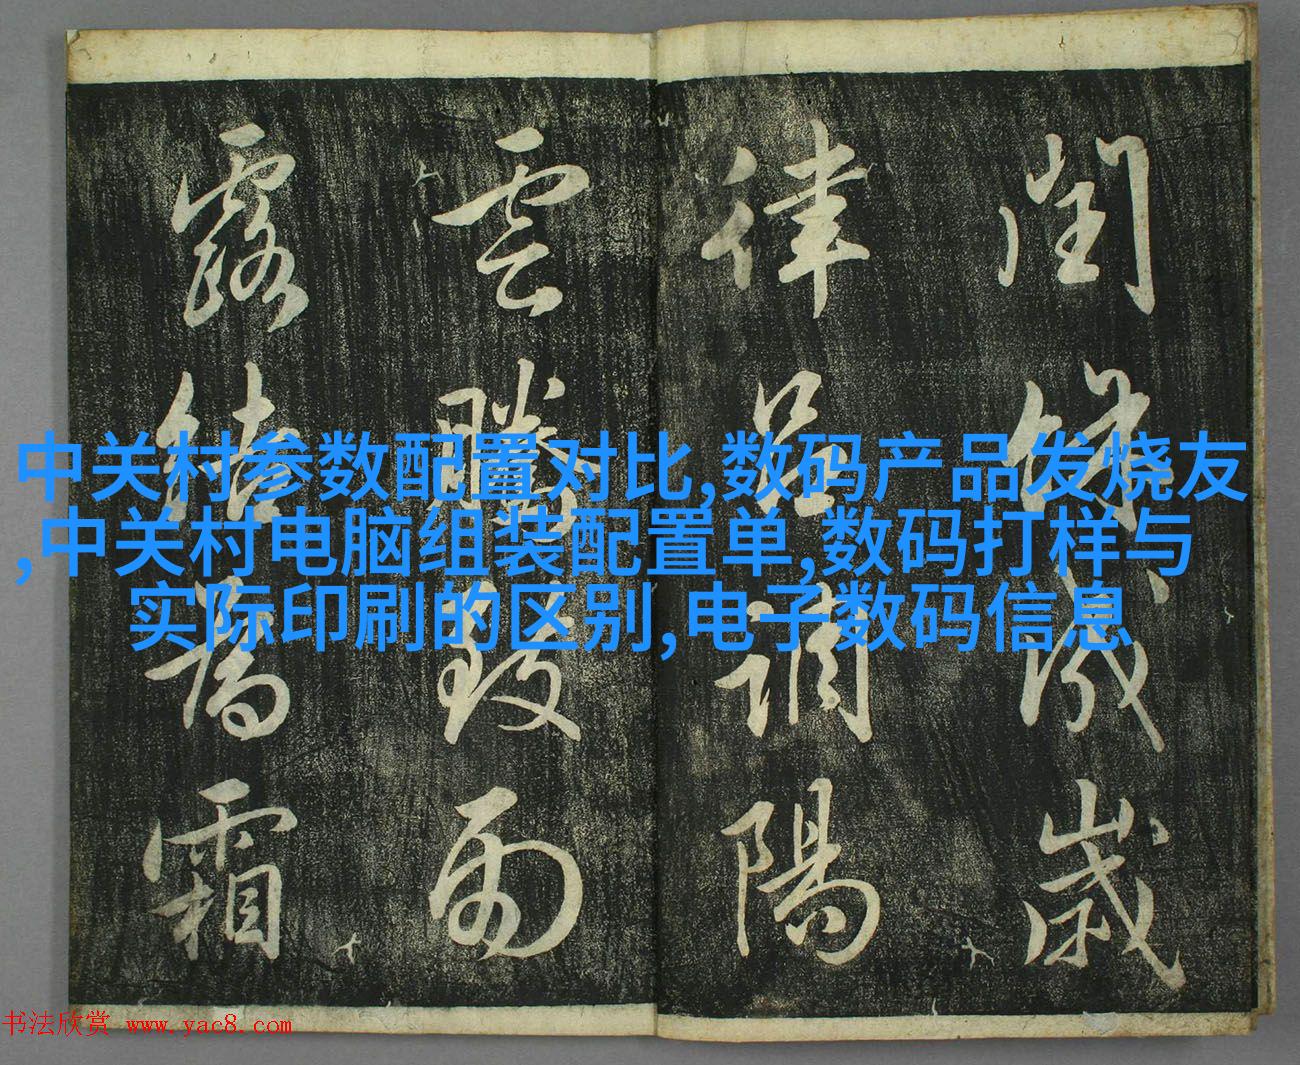 閏餘成歲
律呂調陽
雲騰致雨
露結為霜
中关村参数配置对比,数码产品发烧友
,中关村电脑组装配置单,数码打样与
实际印刷的区别,电子数码信息
书法欣赏 www.yac8.com